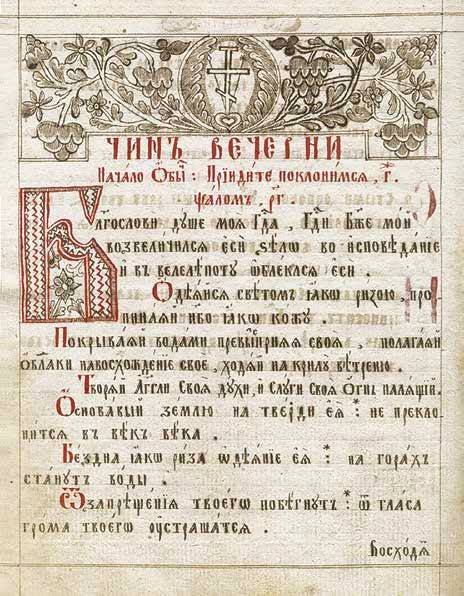 ЧИНЪ ВЕЧЕРНИ
Начало Ѻбы҃ : Прїидите поклонимся , г҃.
Ѱаломъ . рг҃
Бл҃гослови душе моя Гд҃а , Гд҃и Бж҃е мой
возвеличился еси ѕѣлѡ во исповѣданїе
и в велелѣпоту ѡблекся еси .
Ѻдѣяйся свѣтомъ їакѡ ризою , про
пинаяй нб҃о їакѡ кожу .
Покрываяй водами превыспрняя своя , полагаяй
ѻблаки на восхожденїе свое , ходяй на крилꙋ вѣтренюю .
Творяй Агг҃ли Своя духи , и Слуги Своя Огнь палящїй .
Ѻсновавый землю на тверди ея : не прекло
нится в вѣкъ вѣка .
Бездна їакѡ риза ѡдѣянїе ея * : на горахъ
станутъ воды .
Ѿ запрещенїя твоегѡ побѣгнутъ * : ѿ гласа
грома твоегѡ оустрашатся .
восходѧ